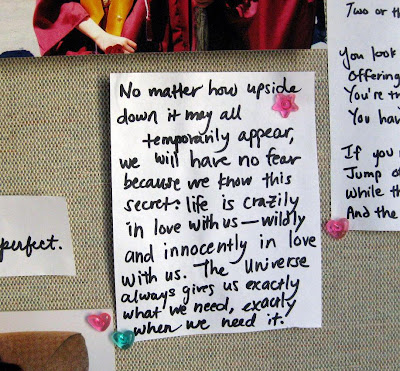 No matter how upside
down it may all
temporarily appear,
we will have no fear
because we know this
secret: life is crazily
in love with us—wildly
and innocently in love
with us. The Universe
always gives us exactly
what we need, exactly
when we need it.
perfect.
Two or th
You look
Offering
You're t
You hav
If you
Jump o
While th
And the